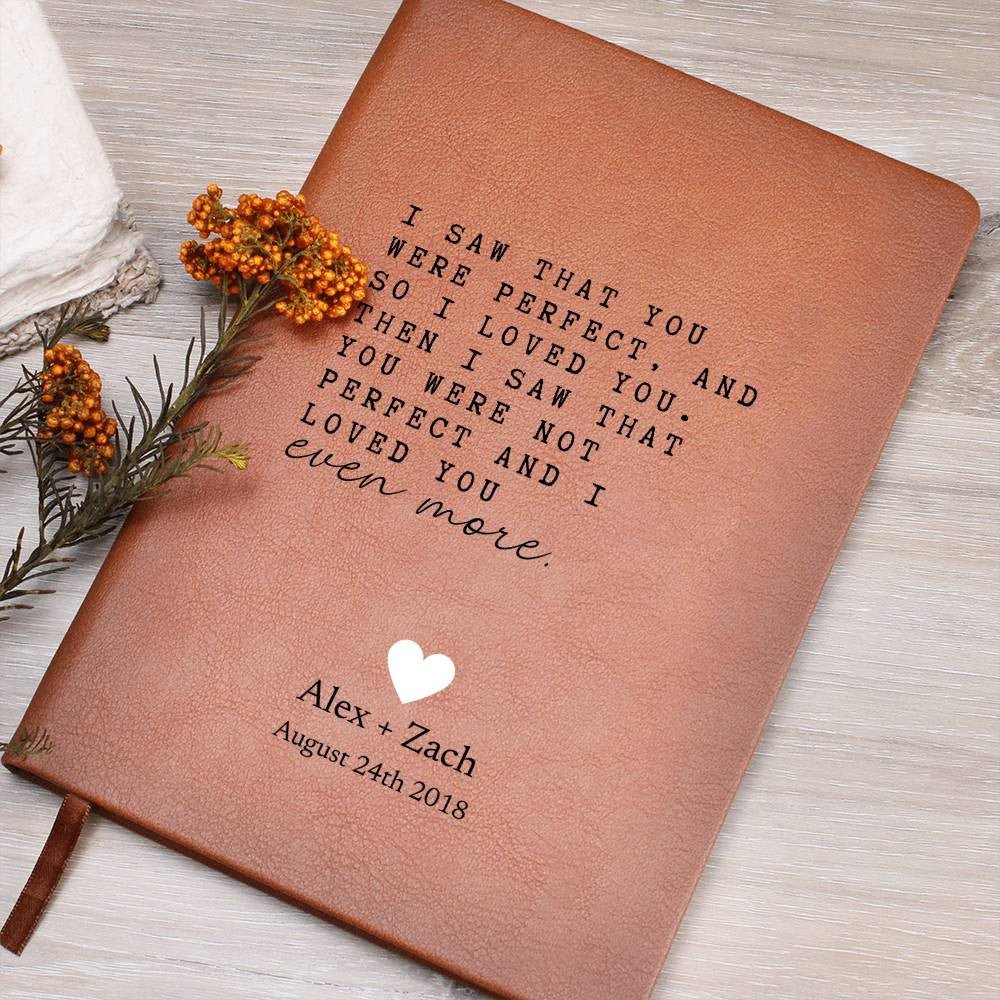 I SAW THAT YOU
WERE PERFECT, AND
SO I LOVED YOU.
THEN I SAW THAT
YOU WERE NOT
PERFECT AND I
LOVED YOU
even more.
Alex + Zach
August 24th 2018